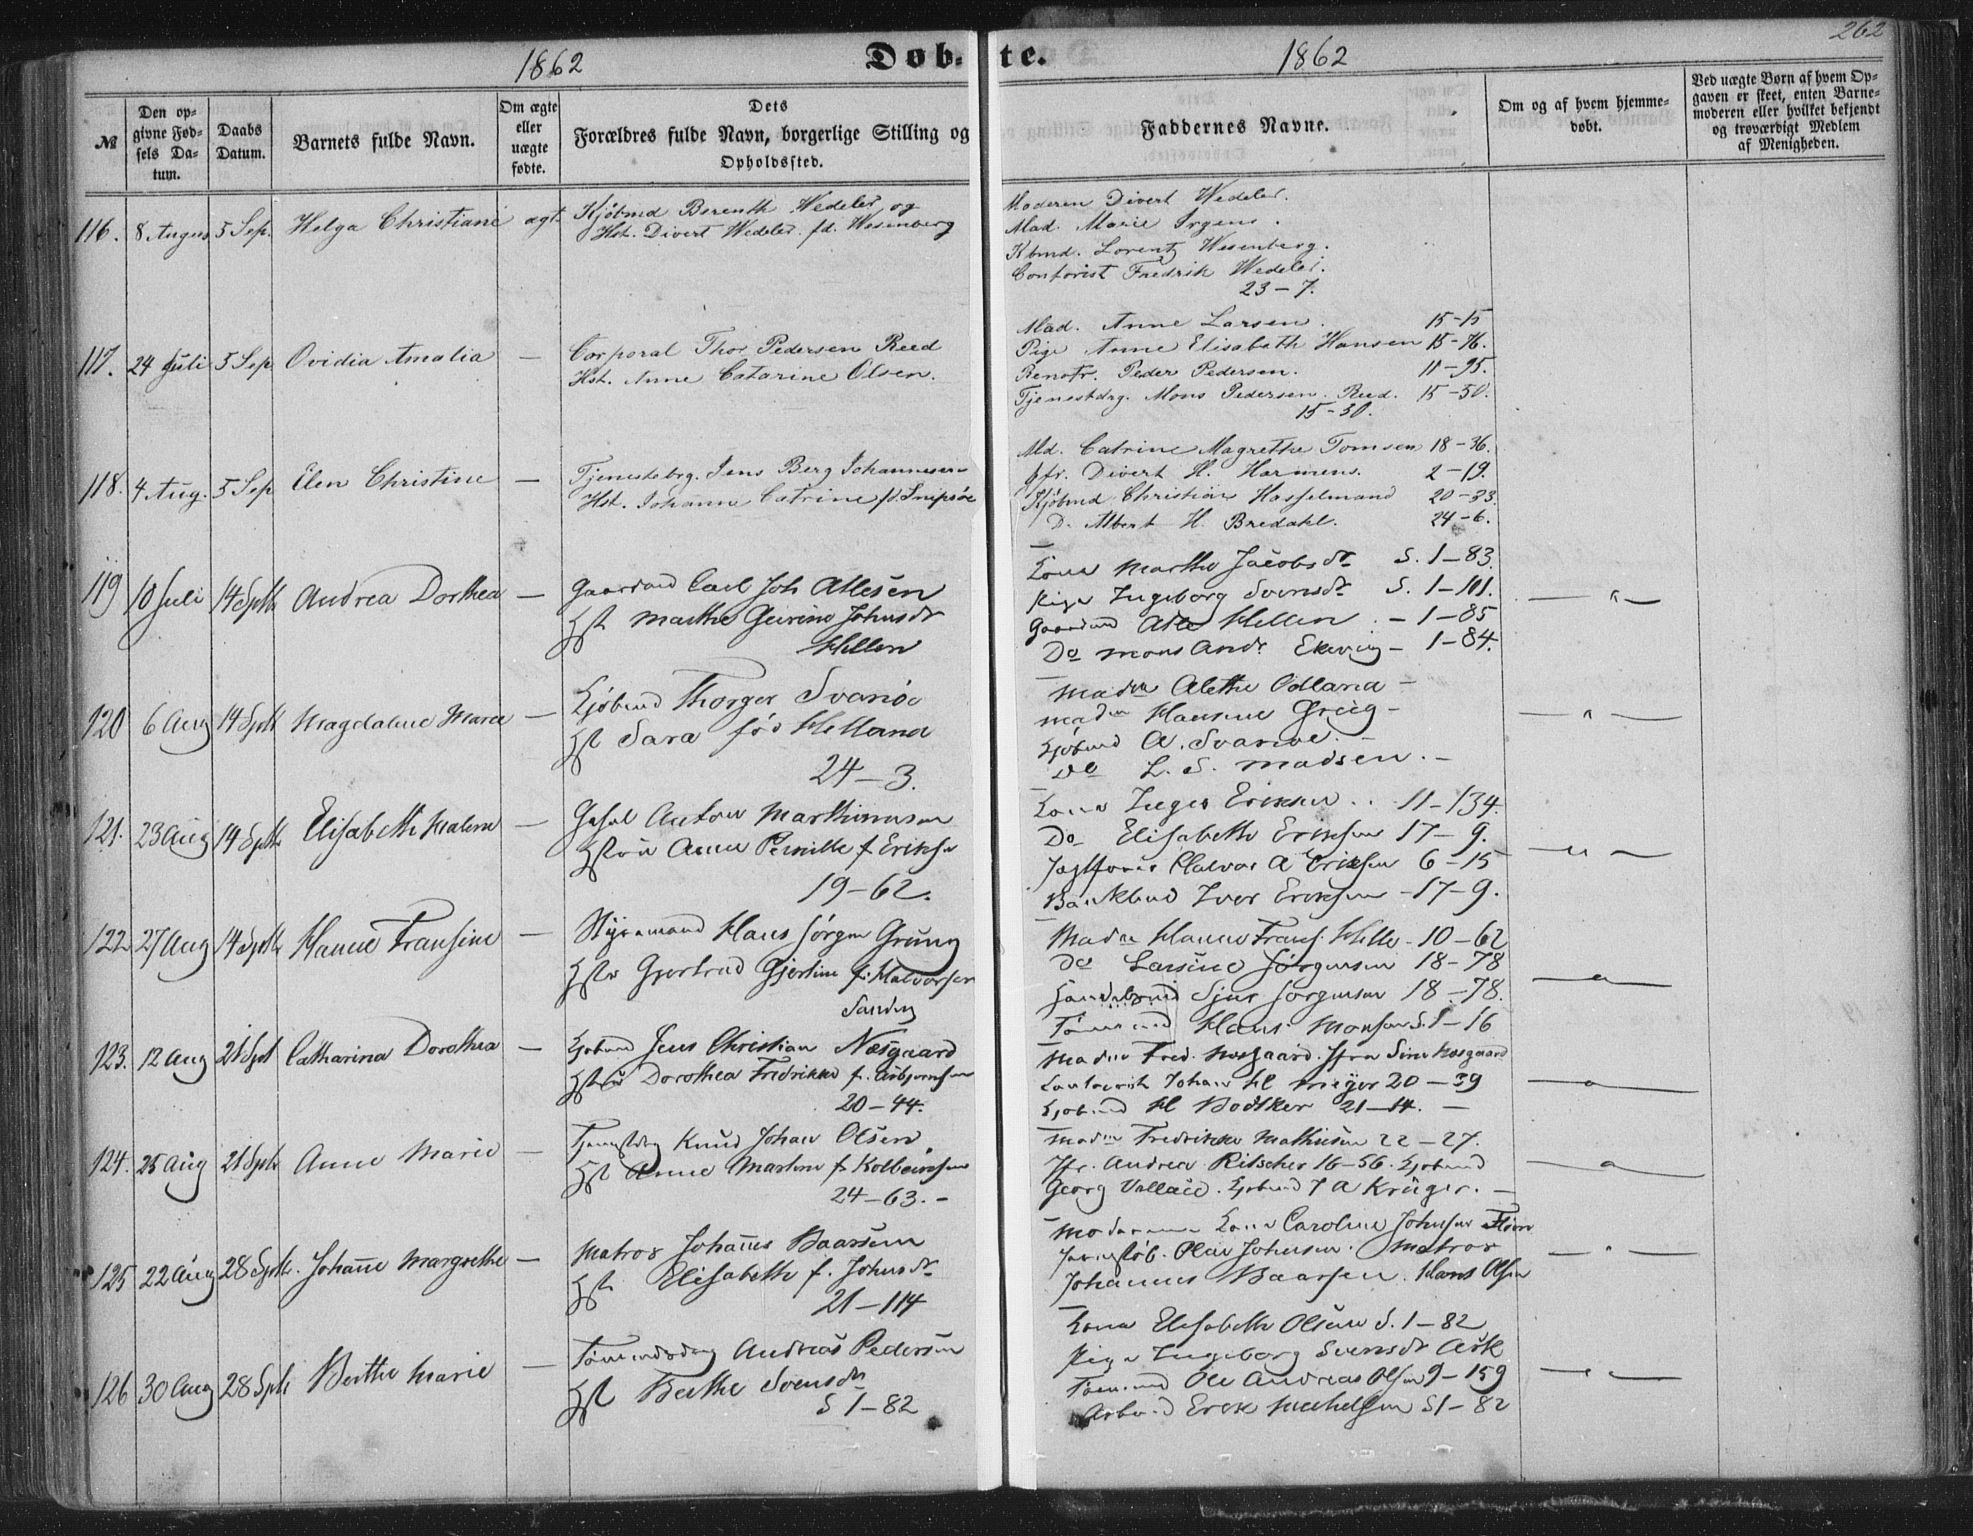 262
1862 Døb- te. 1862
№
Den op-
givne Fød-
sels Da-
tum.
Daabs
Datum.
Barnets fulde Navn.
Om ægte
eller
uægte
fødte.
Dets
Forældres fulde Navn, borgerlige Stilling og
Opholdssted.
Faddernes Navne.
Om og af hvem hjemme-
døbt.
Ved uægte Børn af hvem Op-
gaven er skeet, enten Barne-
moderen eller hvilket bekjendt
og troværdigt Medlem
af Menigheden.
116. 8 August 5 Sep. Helga Christiane ægt.
Kjøbmd Berenth Wedeler og
Hst. Divert Wedeler fd. Wesenberg
Moderen Divert Wedeler.
Mad. Marie Irgens.
Kbmd. Lorentz Wesenberg.
Contorist Fredrik Wedeler.
23-7.
117. 24 Juli 5 Sep Ovidia Amalia —
Corporal Thor Pedersen Reed
Hst. Anne Catarine Olsen.
Mad. Anne Larsen. 15-15
Pige Anne Elisabeth Hansen 15-76.
Peder Pedersen. 11-95.
Tjenestdrg. Mons Pedersen Reed. 15-50.
15-30.
118. 4 Aug. 5 Sep Elen Christine —
Tjenestebrg. Jens Berg Johannesen
Hst. Johanne Catrine fd. Snipsøe
Md. Catrine Magrethe Tomsen 18-36.
Jfr. Divert H. Harmens. 2-19.
Kjøbmd Christian Hasselmand 20-33.
D. Albert H. Bredahl. 24-6.
119 10 Juli 14 Septb Andrea Dorthea —
Gaardmd Carl Joh Atlesen
Hst Marthe Geirine Johnsdr
Hellen
Kona Marthe Jacobsdr S. 1-83.
Pige Ingeborg Svensdr S. 1-101.
Gaardmd Atle Hellen - 1-85
Do Mons Andr 1-84.
120 6 Aug 14 Septb Magdalene Maria —
Kjøbmd Thorger Svanøe
Hst Sara fød Helland
24-3.
Madm Alethe Odland -
Madm Hansine Grieg -
Kjøbmd A. Svanøe. -
Do L. S. Madsen. -
121. 23 Aug 14 Septb Elisabeth Malene —
Gesel Anton Marthinusen
Hstru Anne Pernille f Eriksen
19-62.
Kona Inger Eriksen 11-134.
Do Elisabeth Eriksen 17-9.
Halvor A Eriksen 6-15
Iver Eriksen -17-9.
122 27 Aug 14 Septb Hanne Fransine —
Styrmand Hans Jørgen Grung
Hstr Gjertrud Gjertine f. Halvorsen
Sanden
Madm Hanne Frans. Hille - 10-62
Do Larsine Jørgensen 18-78
Sjur Jørgensen 18-78.
Tømmermd Hans Monsen S. 1-16
123. 12 Aug 21 Sept Catharina Dorothea —
Kjøbmd Jens Christian Næsgaard
Hstru Dorothea Fredrikke f. Asbjørnsen
20-44.
Madm Fred. Næsgaard. Jfru Sine Næsgaard
Contorist Johan H Meyer 20-39
Kjøbmd H Bødtker 21-14. -
124. 25 Aug 21 Septb Anne Marie —
Tjenestdrg Knud Johan Olsen
Hst Anne Marthe f Kolbeinsen
24-63. -
Madm Fredrikke Mathiesen 22-27.
Jfr. Andrea Ritscher 16-56. Kjøbmd
Georg Vallace. Kjøbmd J A Krüger. —
125 22 Aug 28 Septb. Johanne Margrethe —
Matros Johannes Baarsen
Hst Elisabeth f. Johnsdr
21-114
Kona Caroline Johnsen
Olai Johnsen. Matros
Johannes Baarsen. Hans Olsen
126 30 Aug 28 Septb Berthe Marie —
Andreas Pedersen
Hst Berthe Svensdr
S 1-82
Kona Elisabeth Olsen S. 1-82
Pige Ingeborg Svensdr Ask
Tømmermd Ole Andreas Olsen 9-159
Arbmd Erik S1-82